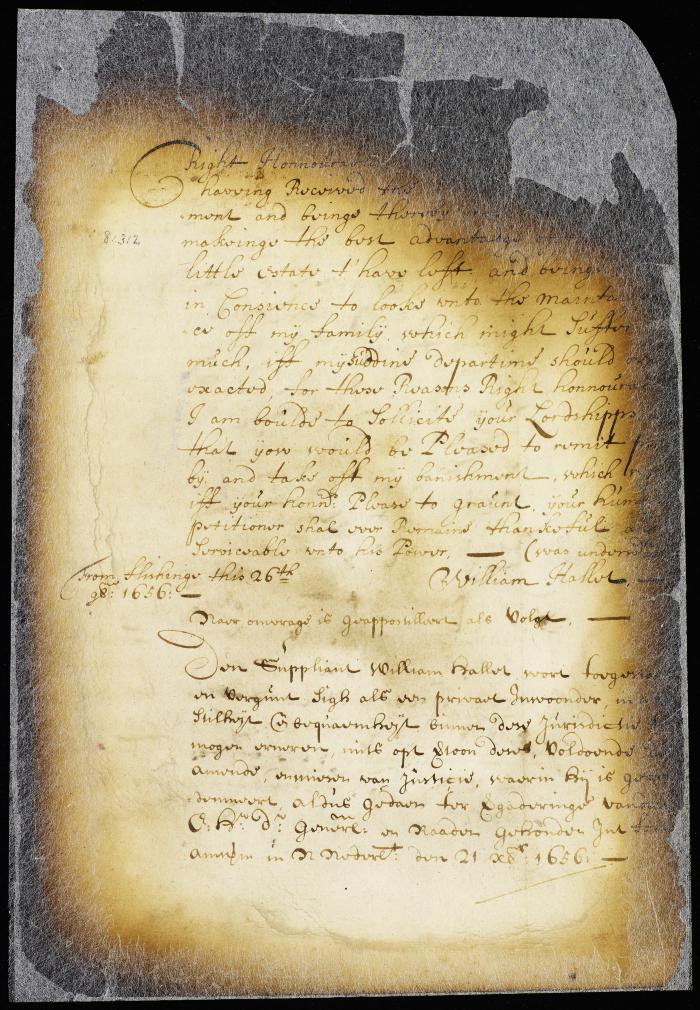 Right Honnoura
haveing Received the
ment and beinge
makeinge the best advantadge
little estate I have left and being
in Consience to looke unto the mainta
ce off my family, which might Suffer
much, iff my suddine departine should
exacted, for these Reasons Right honnoura
I am boulde to Sollicite your Lordshipps
that yow would be Pleased to remit
by, and take off my banishment, which
iff your honrs: Please to graunt, your hum
petitioner shal ever Remaine thankefull
Serviceable unto his Power, — (was under
From Flishinge this 26th William Hallet, —
9br: 1656: —
8:312
Naer omvrage is geapportilleert als Volgt, —
Den Suppliant William Hallet, wort toege
en vergunt sigh als een privaet Inwoonder, in
stilheijt & bequaemheijt binnen dese Jurisdictie
mogen erneren, mits opt Eijson deses, voldoende
amende, en misen van Justicie, waerin hij is ge
demneert, aldus gedaen ter Vgaderinge vande
E: Hrn Dr Generl: en Raaden gehouden Int
Amsterdam in N Nederlt: den 21 Xbr: 1656: —